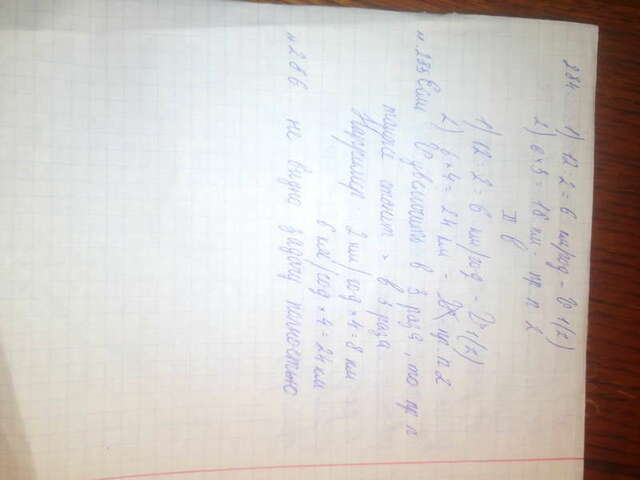 284. 1) 12:2=6 км/год - V 1(2)
2) 6×3=18 км - пр п 2
II в
1) 12:2=6 км/год - V 1(2)
2) 6×4=24 км - пр п 2
н.285 Если V увеличить в 3 раза, то пр п
тоже станет > в 3 раза
Например: 2 км/год × 4 = 8 км
6 км/год × 4 = 24 км
н 286 не видно задачу полностью